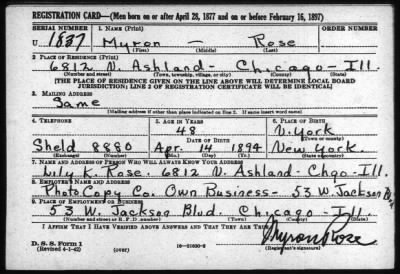 REGISTRATION CARD—(Men born on or after April 28, 1877 and on or before February 16, 1897)
SERIAL NUMBER 1. NAME (Print)
U 1837 Myron — Rose
(First) (Middle) (Last)
2. PLACE OF RESIDENCE (Print)
6812 N. Ashland - Chicago - Ill.
(Number and street) (Town, township, village, or city) (County) (State)
[THE PLACE OF RESIDENCE GIVEN ON THE LINE ABOVE WILL DETERMINE LOCAL BOARD
JURISDICTION; LINE 2 OF REGISTRATION CERTIFICATE WILL BE IDENTICAL]
3. MAILING ADDRESS
Same
[Mailing address if other than place indicated on line 2. If same insert word same]
4. TELEPHONE 5. AGE IN YEARS 6. PLACE OF BIRTH
48 N. York
DATE OF BIRTH (Town or county)
Sheld 8880 Apr. 14 1894 New York.
(Exchange) (Number) (Mo.) (Day) (Yr.) (State or country)
7. NAME AND ADDRESS OF PERSON WHO WILL ALWAYS KNOW YOUR ADDRESS
Lily K. Rose. 6812 N. Ashland - Chgo - Ill.
8. EMPLOYER'S NAME AND ADDRESS
Photo Copy Co. Own Business - 53 W. Jackson
9. PLACE OF EMPLOYMENT OR BUSINESS
53 W. Jackson Blvd. Chicago - Ill.
(Number and street or R. F. D. number) (Town) (County) (State)
I AFFIRM THAT I HAVE VERIFIED ABOVE ANSWERS AND THAT THEY ARE TRUE.
D. S. S. Form 1
(Revised 4-1-42) (over) 16—21630-2 Myron Rose